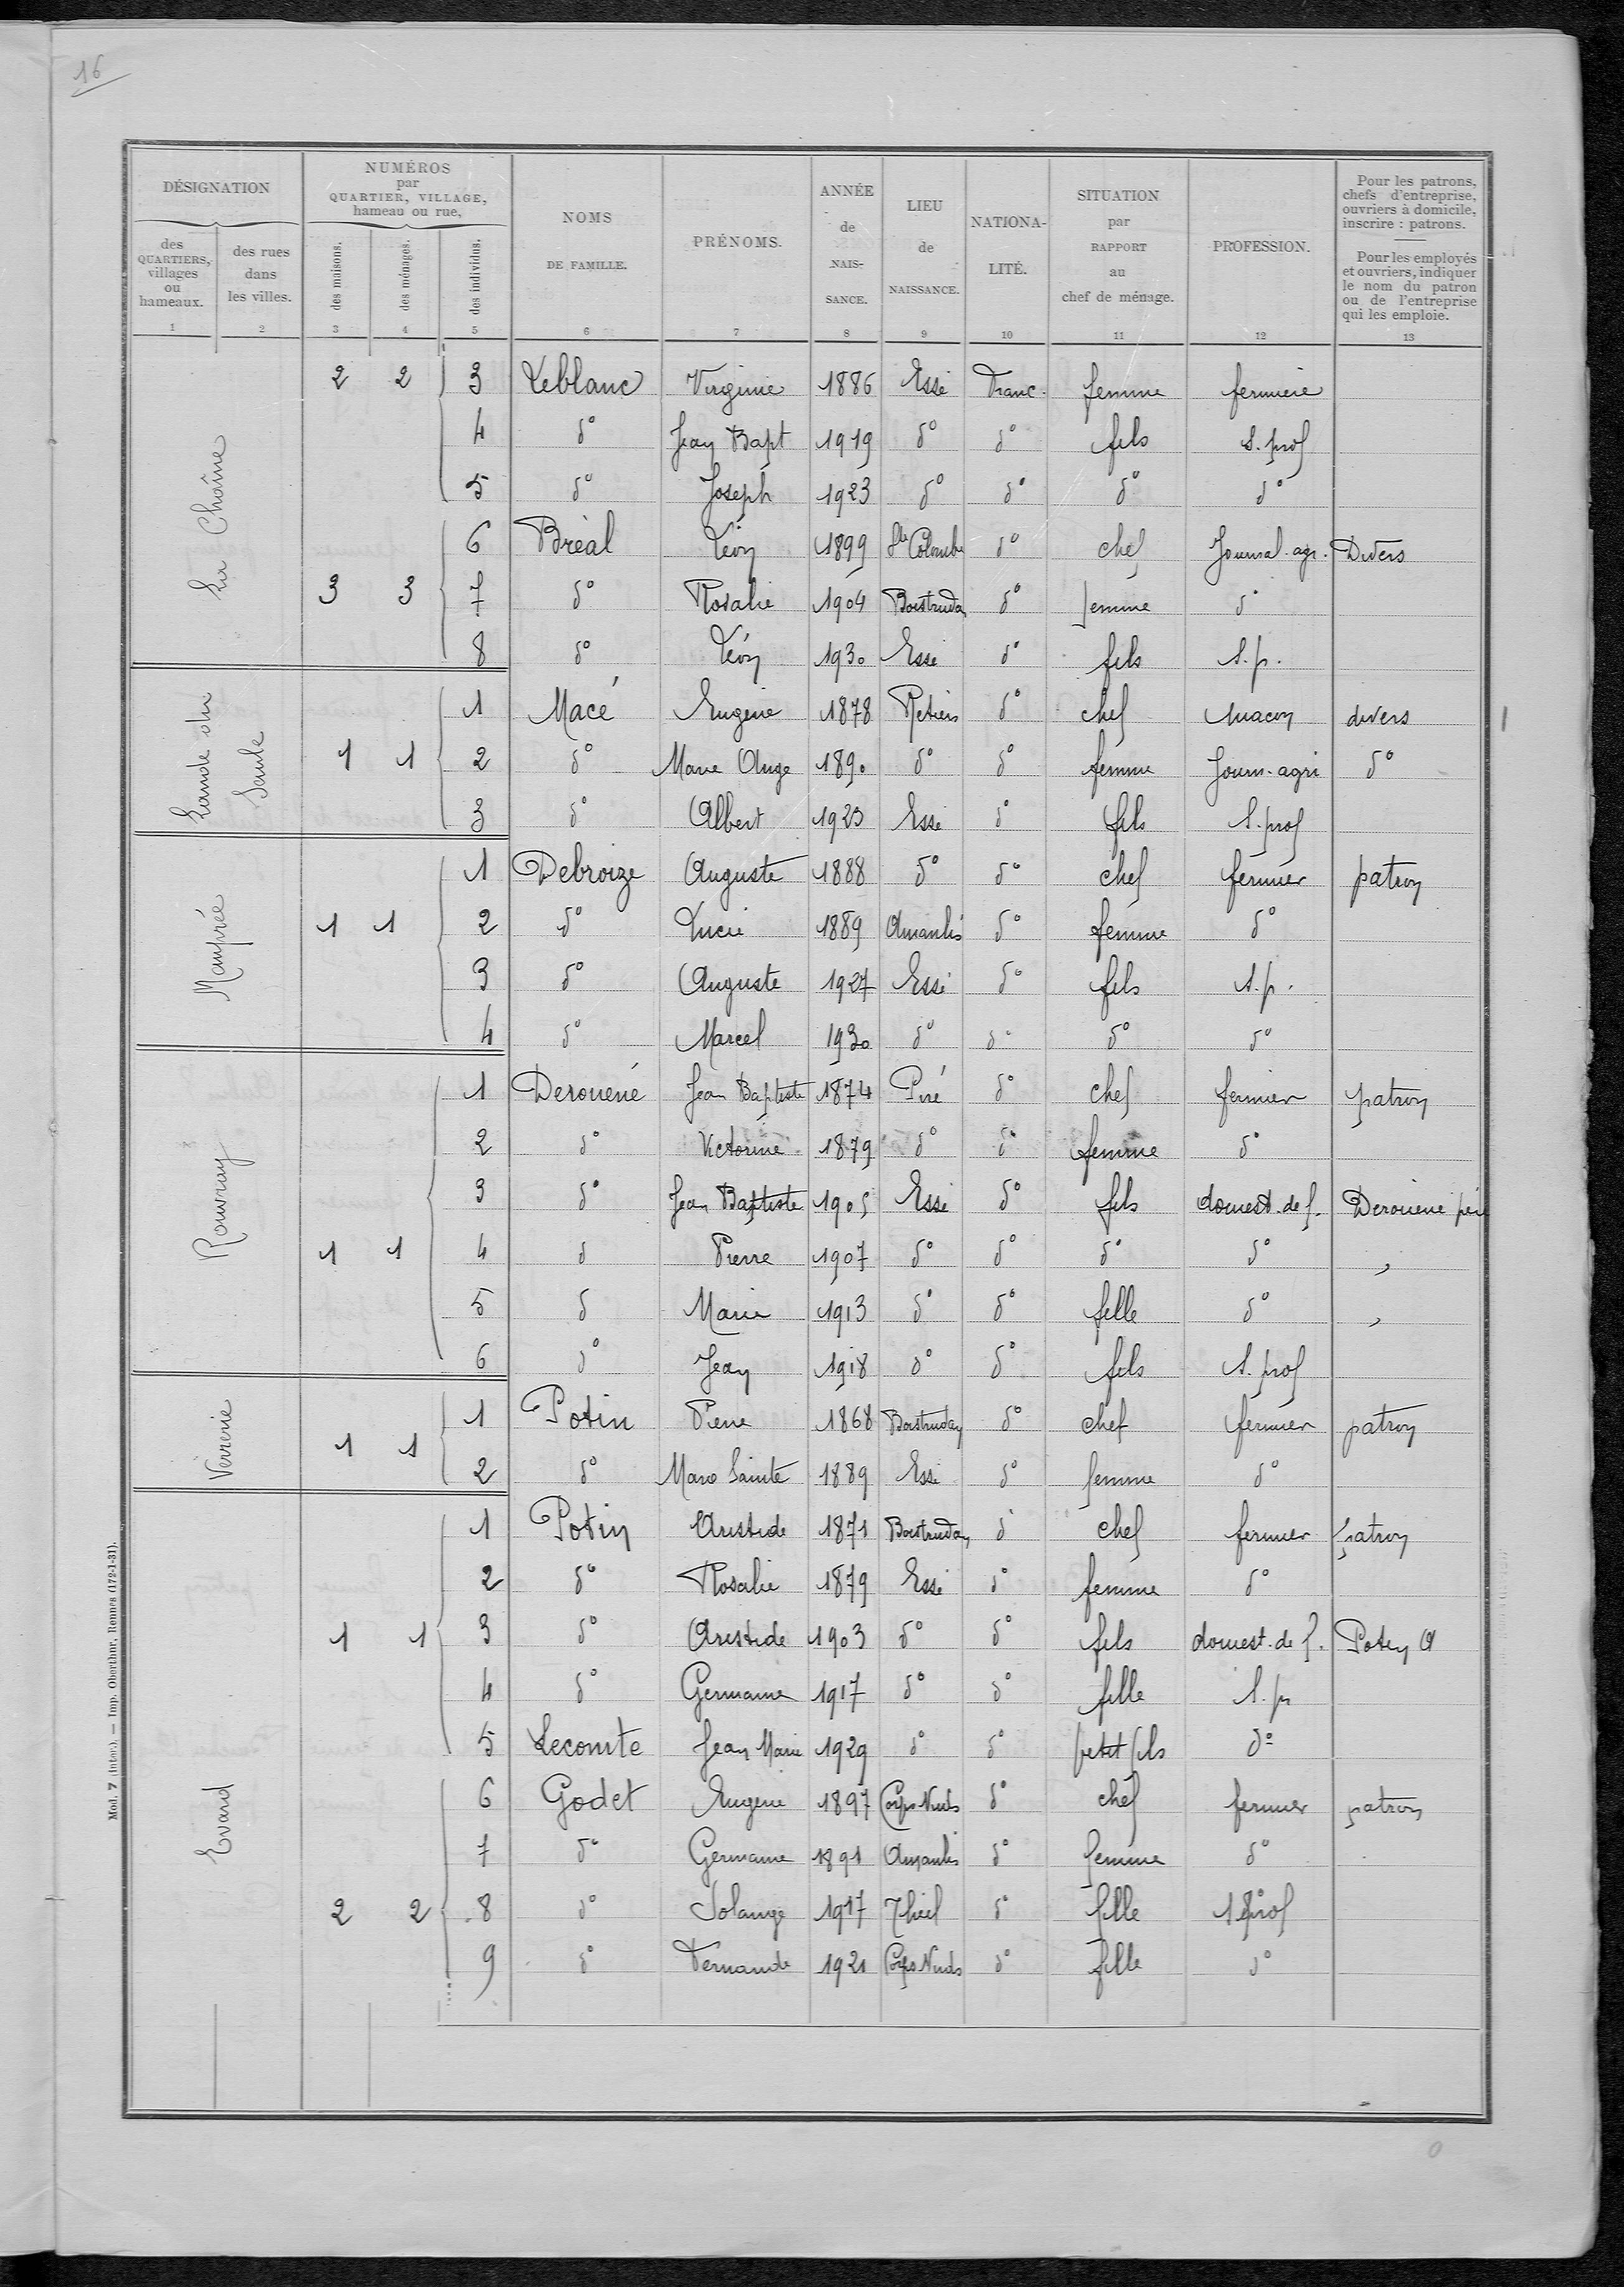 16
DÉSIGNATION
des QUARTIERS, villages ou hameaux.
des rues dans les villes.
NUMÉROS par QUARTIER, VILLAGE, hameau ou rue,
des maisons.
des ménages.
des individus.
NOMS DE FAMILLE.
PRÉNOMS.
ANNÉE de NAIS- SANCE.
LIEU de NAISSANCE.
NATIONA- LITÉ.
SITUATION par RAPPORT au chef de ménage.
PROFESSION.
Pour les patrons, chefs d'entreprise, ouvriers à domicile, inscrire : patrons.
Pour les employés et ouvriers, indiquer le nom du patron ou de l'entreprise qui les emploie.
1 2 3 4 5 6 7 8 9 10 11 12 13
La Chaîne
2 2 3 Leblanc Virginie 1886 Essé Franc. femme fermière
4 do Jean Bapt 1919 do do fils S. prof
5 do Joseph 1923 do do do do
6 Bréal Léon 1899 Ste Colombe do chef Journal. agr. Divers
3 3 7 do Rosalie 1904 Boistruda do femme do
8 do Léon 1930 Essé do fils S. p.
Lande du Saule
1 Macé Eugène 1878 Retiers do chef maçon divers
1 1 2 do Marie Ange 1890 do do femme Journ. agri do
3 do Albert 1923 Essé do fils S. prof
Maupiée
1 Debroize Auguste 1888 do do chef fermier patron
1 1 2 do Lucie 1889 Amanlis do femme do
3 do Auguste 1927 Essé do fils S. p.
4 do Marcel 1930 do do do do
Rouvray
1 Derouené Jean Baptiste 1874 Piré do chef fermier patron
2 do Victorine 1879 do do femme do
3 do Jean Baptiste 1905 Essé do fils domest. de f. Derouéné père
1 1 4 d Pierre 1907 do do do do "
5 d Marie 1913 do do fille do "
6 do Jean 1918 do do fils S. prof
Verrerie
1 Potin Pierre 1868 Boistrudan do chef fermier patron
1 1 2 do Marie Sainte 1889 Essé do femme do
Evard
1 Potin Aristide 1871 Boistrudan d chef fermier patron
2 do Rosalie 1879 Essé do femme do
1 1 3 do Aristide 1903 do do fils domest. de f. Potin A
4 do Germaine 1917 do do fille S. p
5 Lecomte Jean Marie 1929 do do petit fils do
6 Godet Eugène 1897 Corps Nuds do chef fermier patron
7 do Germaine 1891 Amanlis do femme do
2 2 8 do Solange 1917 Theil do fille S prof
9 do Fernande 1921 Corps Nuds do fille do
Mod. 7 (inter.). — Imp. Oberthur, Rennes (172-1-31).
0